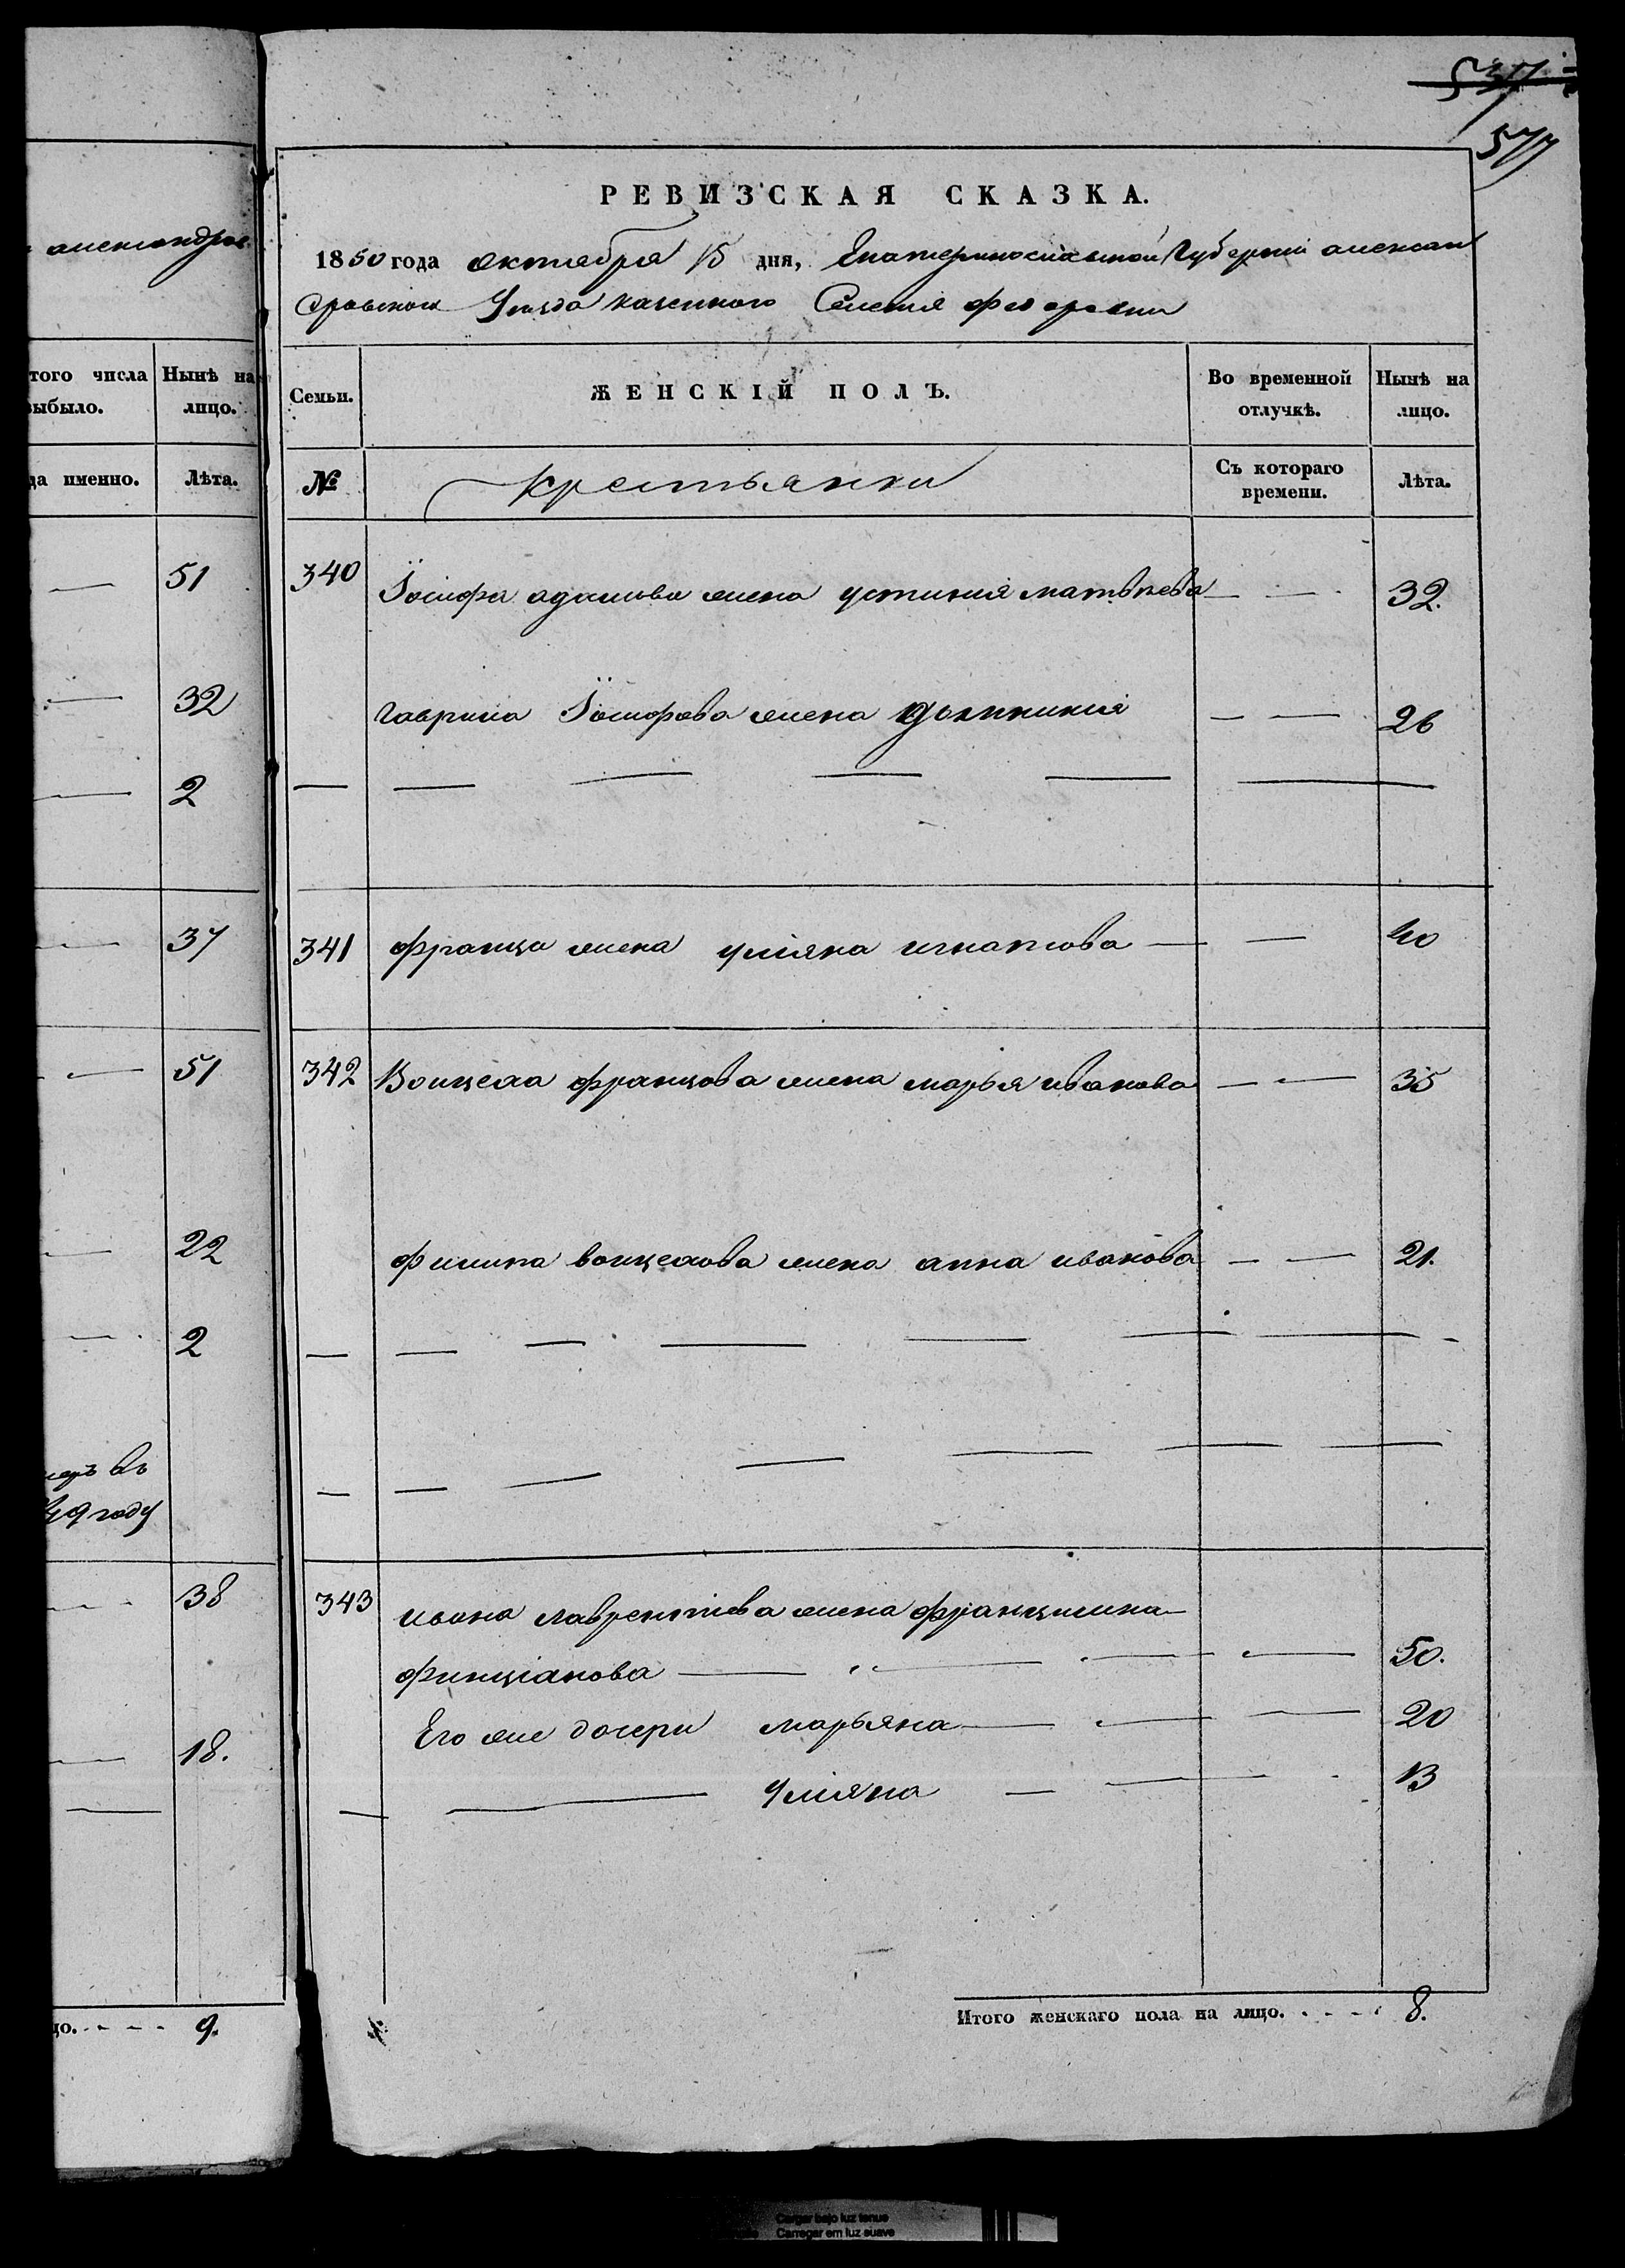 577
александров
РЕВИЗСКАЯ СКАЗКА.
1850 года октября 15 дня, Екатеринославской Губернии алексан
дровского Уезда казенного Селения федоровки
того числа
выбыло.
Нынѣ на
лицо.
Семьи.
ЖЕНСКІЙ ПОЛЪ.
Во временной
отлучкѣ.
Нынѣ на
лицо.
да именно.
Лѣта.
№
крестьянки
Съ котораго
времени.
Лѣта.
51
340
Іосифа адамова жена устинія матвѣева
32.
32
гаврила Іосифова жена
26
2
37
341
франца жена уліяна игнатова
40
51
342
Войцеха францова жена марья иванова
35
22
филипа войцехова жена анна иванова
21.
2
меръ въ
49 году
38
343
ивана лаврентиева жена францишка
финціанова
50.
Его же дочери марьяна
20
18.
уліяна
13
цо.
9.
Итого женскаго пола на лицо.
8.
Cargar bajo luz tenue
Carregar em luz suave